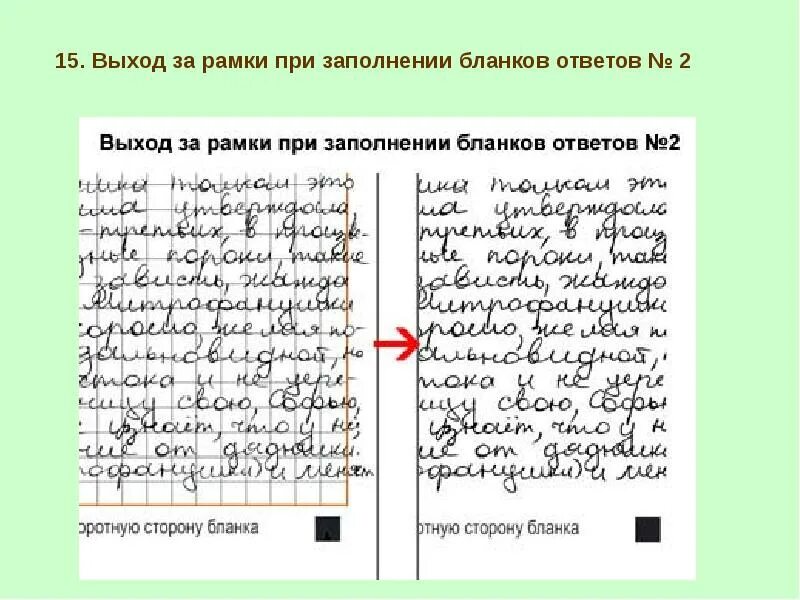 15. Выход за рамки при заполнении бланков ответов № 2
Выход за рамки при заполнении бланков ответов №2
толкам это
утверждала,
-третьих, в процве-
ные пороки, такие
зависть, жажда
Митрофанушки
орошо, желая по-
зальновидной, но
тока и не уере-
ницу свою, Софью,
узнаёт, что у не
ие от дядюшки.
рофанушки) и меняет
оротную сторону бланка
ика толкам эт
утверждала
третьих, в проц
ные пороки, таки
зависть, жажда
Митрофанушки
орошо, желая п
альновидной,
тока и не уере
ницу свою, Софью
узнаёт, что у н
ие от дядюшки
рофанушки) и мен
отную сторону бланка